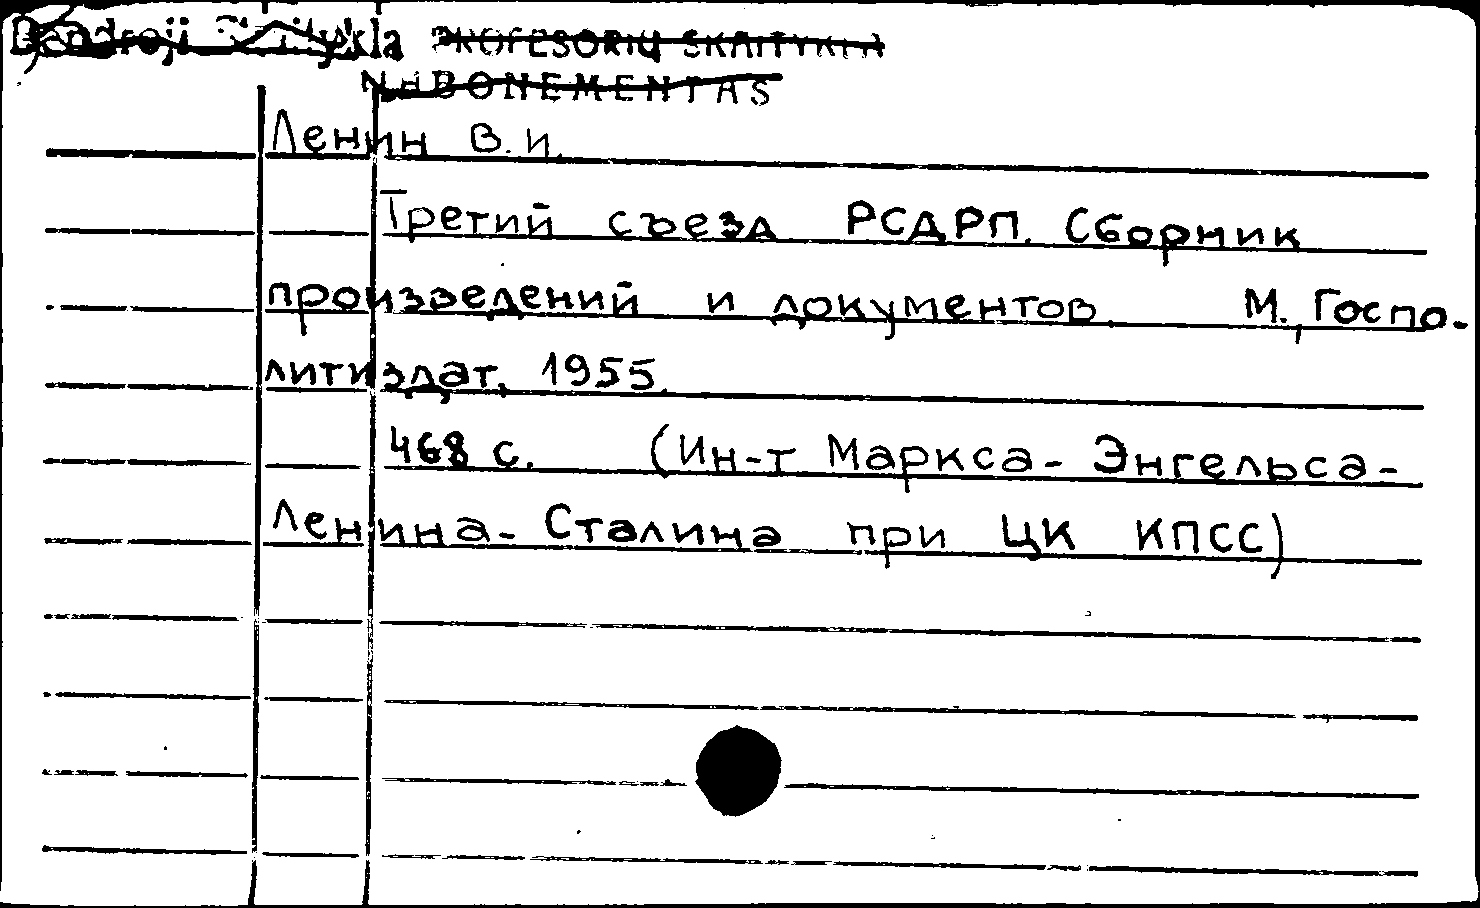 Bendroji skaitykla PROFESORIŲ SKAITYKLA
N ABONEMENTAS
Ленин В.И.
Третий съезд РСДРП. Сборник
произведений и документов. М., Госпо-
литиздат, 1955.
468 с. (Ин-т Маркса-Энгельса-
Ленина-Сталина при ЦК КПСС)